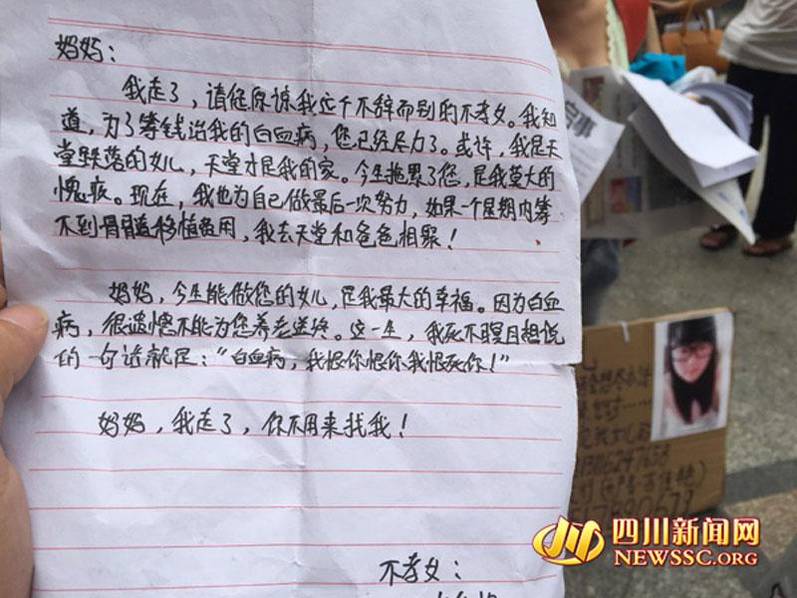 妈妈：
我走了，请您原谅我这个不辞而别的不孝女。我知
道，为了筹钱治我的白血病，您已经尽力了。或许，我是天
堂跌落的女儿，天堂才是我的家。今生拖累了您，是我莫大的
愧疚。现在，我也为自己做最后一次努力，如果一个星期内筹
不到骨髓移植费用，我去天堂和爸爸相聚！
妈妈，今生能做您的女儿，是我最大的幸福。因为白血
病，很遗憾不能为您养老送终。这一生，我死不瞑目想说
的一句话就是：“白血病，我恨你恨你我恨死你！”
妈妈，我走了，你不用来找我！
不孝女：
四川新闻网
NEWSSC.ORG